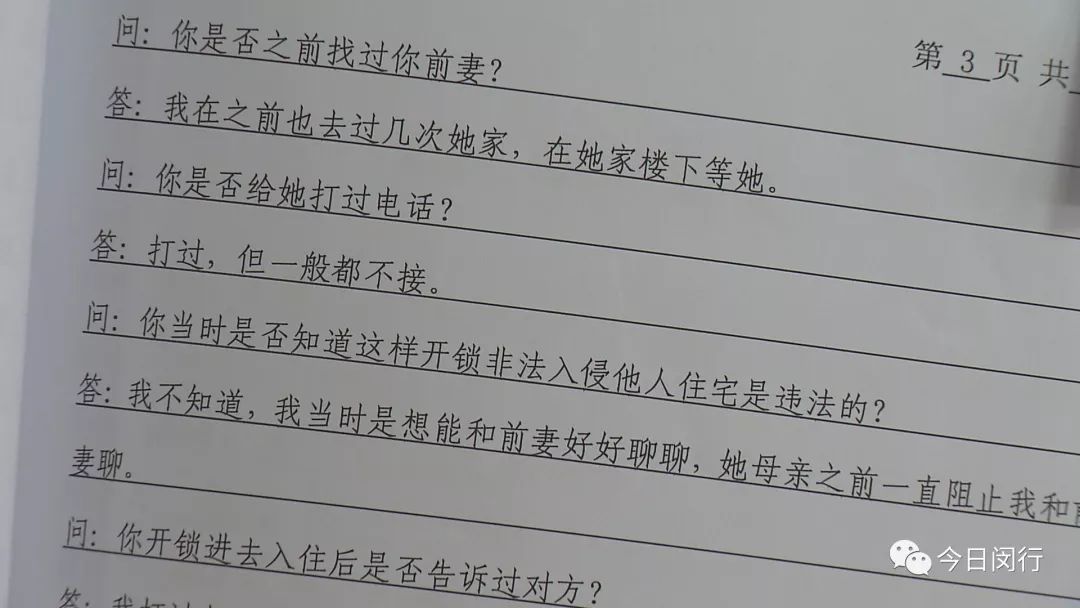 第 3 页 共
问：你是否之前找过你前妻？
答：我在之前也去过几次她家，在她家楼下等她。
问：你是否给她打过电话？
答：打过，但一般都不接。
问：你当时是否知道这样开锁非法入侵他人住宅是违法的？
答：我不知道，我当时是想能和前妻好好聊聊，她母亲之前一直阻止我和前
妻聊。
问：你开锁进去入住后是否告诉过对方？
答：我打过
今日闵行